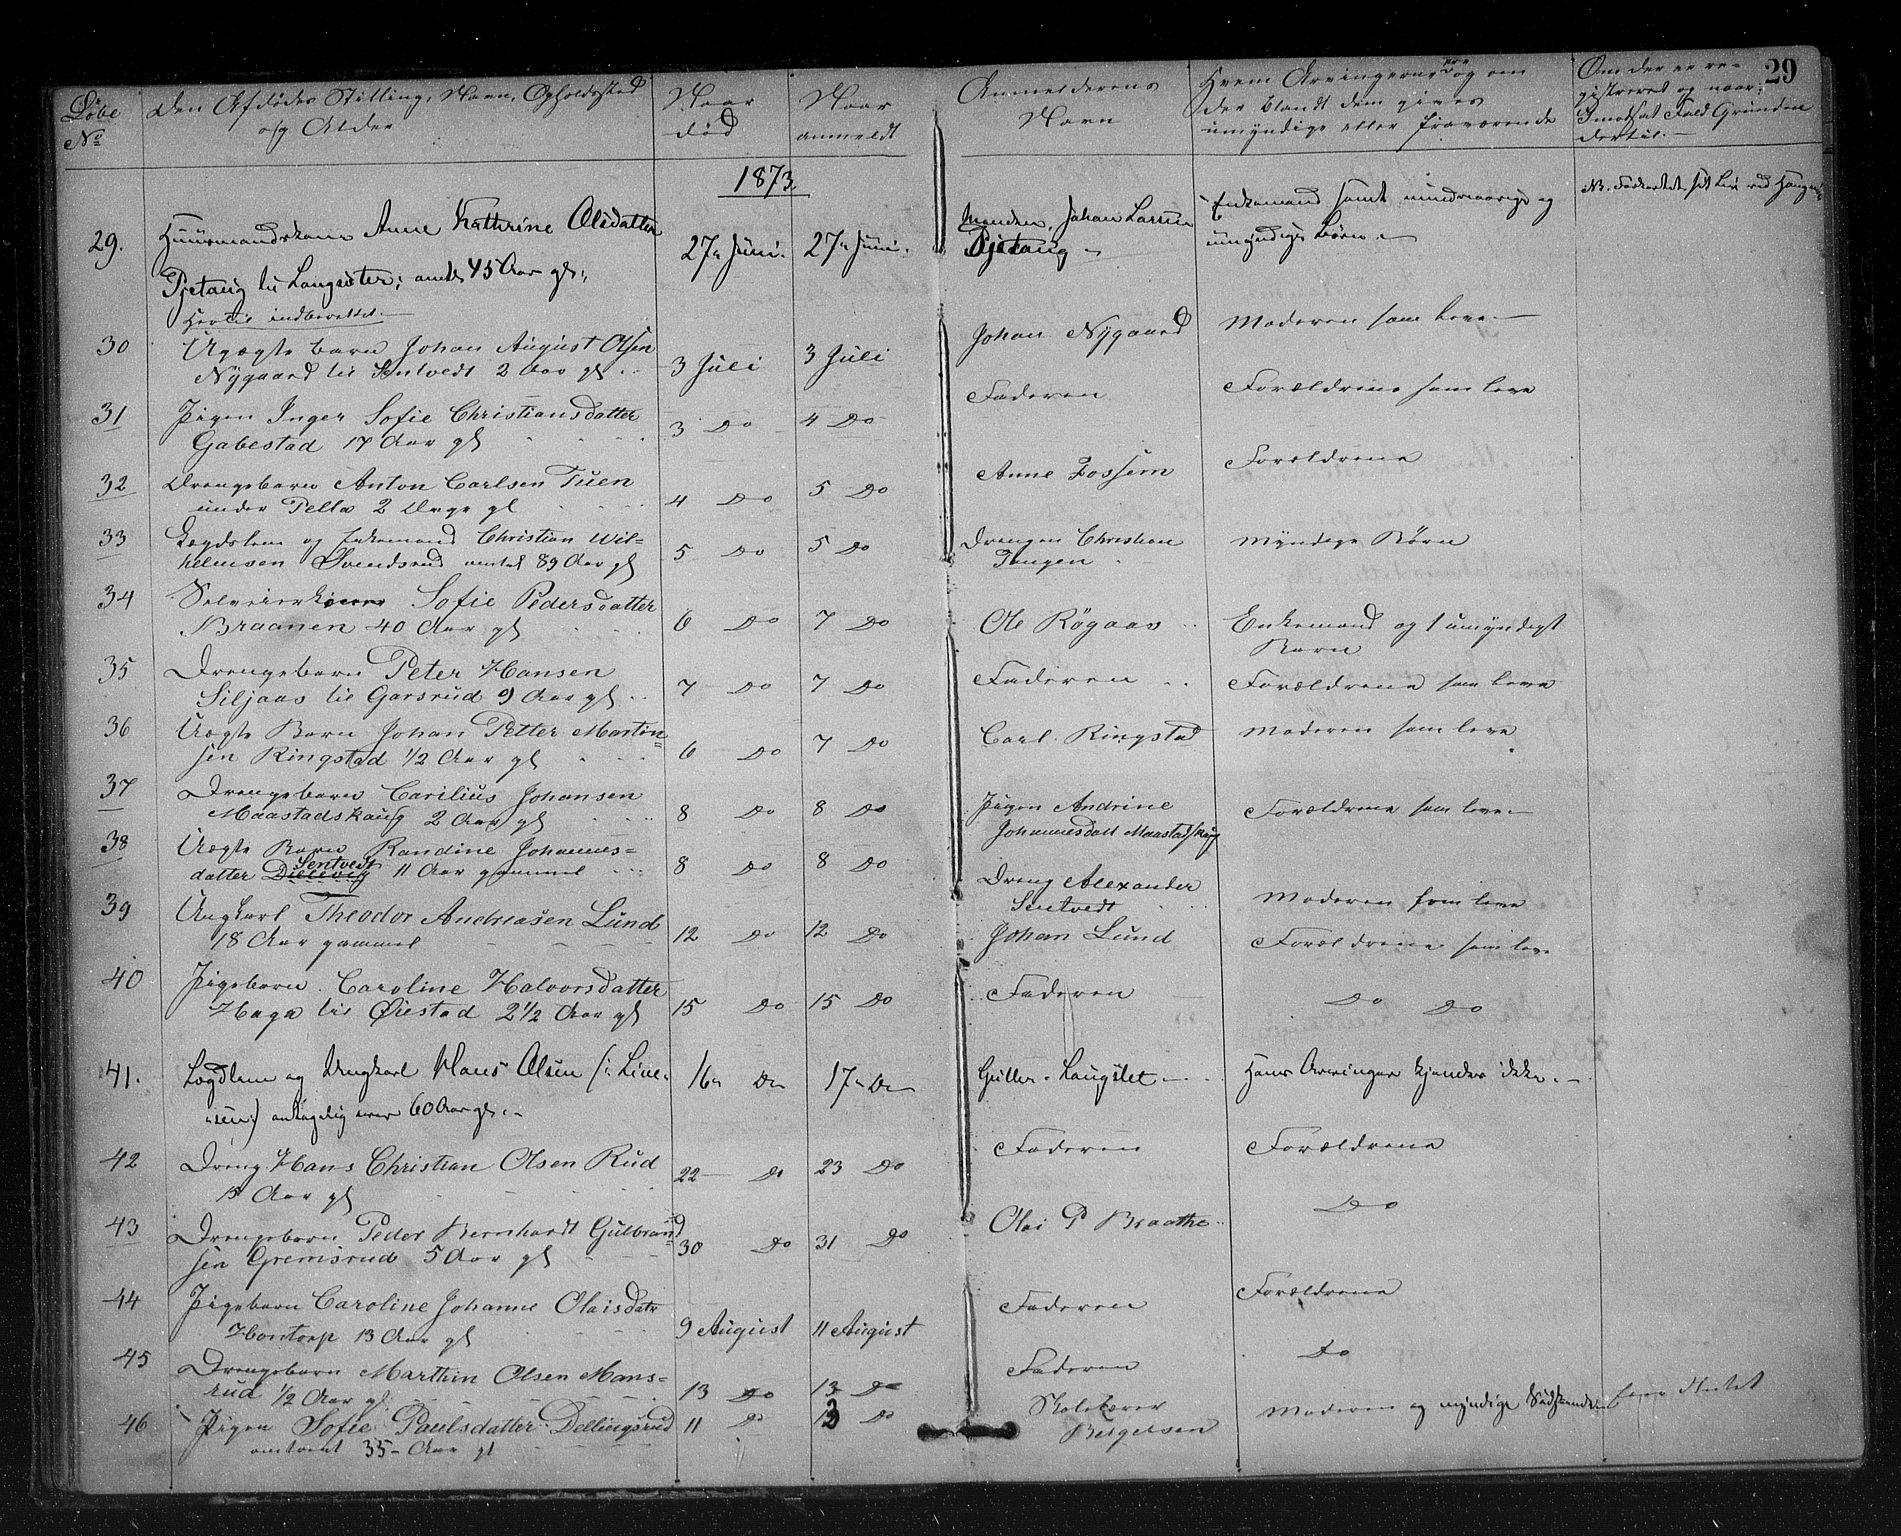 29
Løbe Den Afdødes Stilling, Navn, Opholdssted Naar Naar Anmelderens Hvem Arvingerne ere og om Om der er re-
No og Alder død anmeldt Navn der blandt dem gives gistreret og naar;
umyndige eller fraværende I modsat Fald Grunden
dertil.-
1873
29. Huusmandskone Anne Kathrine Olsdatter 27de Juni. 27de Juni. Manden, Johan Larsen Enkemand samt mindreaarige og NB. Forkortet sit Liv ved
Pjetaug til Langsæter; omtr 45 Aar gl; Pjetaug - umyndige Børn.-
Hertil indberettet.-
30 Uægte Barn Johan August Olsen 3 Juli 3 Juli Johan Nygaard Moderen som leve-
Nygaard til Sentvedt 2 Aar gl
31 Pigen Inger Sofie Christiansdatter 3 Do 4 Do Faderen Forældrene som leve
Gabestad 17 Aar gl
32 Drengebarn Anton Carlsen Tuen 4 Do 5 Do Anne Fossum Forældrene
under Pelta 2 Dage gl
33 Lægdslem og Enkemand Christian Wil- 5 Do 5 Do Drengen Christian Myndige Børn
helmsen Svendsrud omtrt 89 Aar gl Tangen
34 Selveierkone Sofie Pedersdatter 6 Do 7 Do Ole Røgaas Enkemand og 1 umyndigt
Braanen 40 Aar gl Barn
35 Drengebarn Peter Hansen 7 Do 7 Do Faderen Forældrene som leve
Siljaas til Garsrud 9 Aar gl
36 Uægte Barn Johan Petter Martin= 6 Do 7 Do Carl Ringstad Moderen som leve
sen Ringstad 1/2 Aar gl
37 Drengebarn Carilius Johansen 8 Do 8 Do Pigen Andrine Forældrene som leve-
Maastadskaug 2 Aar gl Johannesdatt Maastadskaug
38 Uægte Barn Randine Johannes= 8 Do 8 Do Dreng Alexander Moderen som leve
Sentvedt
datter Dillevig 11 Aar gammel Sentvedt
39 Ungkarl Theodor Andreasen Lund 12 Do 12 Do Johan Lund Forældrene som leve
18 Aar gammel
40 Pigebarn Caroline Halvorsdatter 15 Do 15 Do Faderen Do Do
Haga til Øiestad 2 1/2 Aar gl
41. Lægdlem og Ungkarl Hans Olsen (: Line- 16de Do 17de Do Guller Langslet - Hans Arvinger kjendes ikke.-
sen:) antagelig over 60 Aar gl.-
42 Dreng Hans Christian Olsen Rud 22 Do 23 Do Faderen Forældrene
15 Aar gl
43 Drengebarn Peder Bernhardt Gulbrand 30 Do 31 Do Olai P Braathe Do
sen Gremsrud 5 Aar gl
44 Pigebarn Caroline Johanne Olaisdatr 9 August 11 August Faderen Forældrene
Hontorp 13 Aar gl
45 Drengebarn Marthin Olsen Mans- 13 Do 13 Do Faderen Do
rud 1/2 Aar gl.
46 Pigen Sofie Paulsdatter Dælingsrud 11 Do 13 Do Skolelærer Moderen og myndige Sødskende
omtrent 35 Aar gl Bergersen